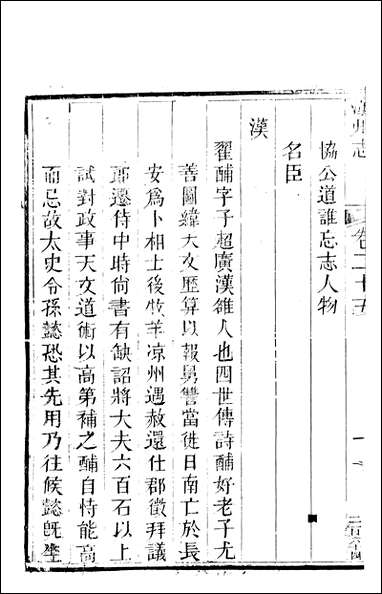 漢州志
卷二十五
協公道誰忘志人物
名臣
漢
翟酺字子超廣漢雒人也四世傳詩酺好老子尤
善圖緯天文歷算以報舅讐當徙日南亡於長
安爲卜相士後牧羊凉州遇赦還仕郡徵拜議
郎遷侍中時尚書有缺詔將大夫六百石以上
試對政事天文道術以高第補之酺自恃能高
而忌故太史令孫懿恐其先用乃往候懿旣坐